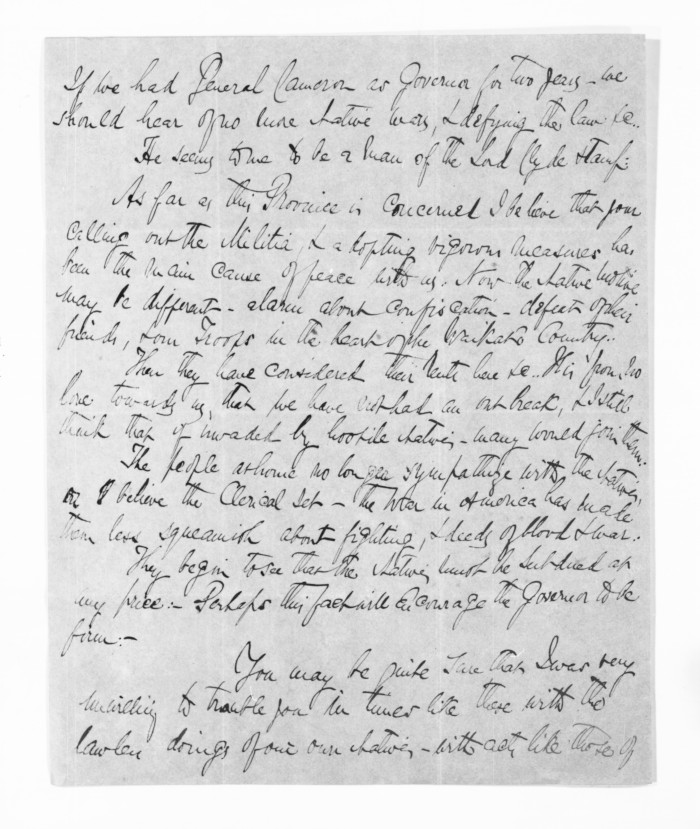 If we had General Cameron as Governor for two years - we
should hear of no more Native wars, & defying the law &c..
He seems to me to be a man of the Lord Clyde stamp:
As far as this Province is concerned I believe that your
calling out the Militia, & adopting vigorous measures has
been the main cause of peace with us. Now the Native motive
may be different - alarm about confiscation - defeat of their
friends, & our Troops in the heart of the Waikato Country..
Then they have considered their rents here &c.. It is from no
love towards us, that we have not had an outbreak, & I still
think that if invaded by hostile Natives - many would join them:
The people at home no longer sympathize with the Natives,
or I believe the Clerical Set - the War in America has made
them less squeamish about fighting, & deeds of blood & war:
They begin to see that the Natives must be subdued at
any price:- Perhaps this fact will encourage the Governor to be
firm:-
You may be quite sure that I was very
unwilling to trouble you in times like these with the
lawless doings of our own Natives - with acts like those of